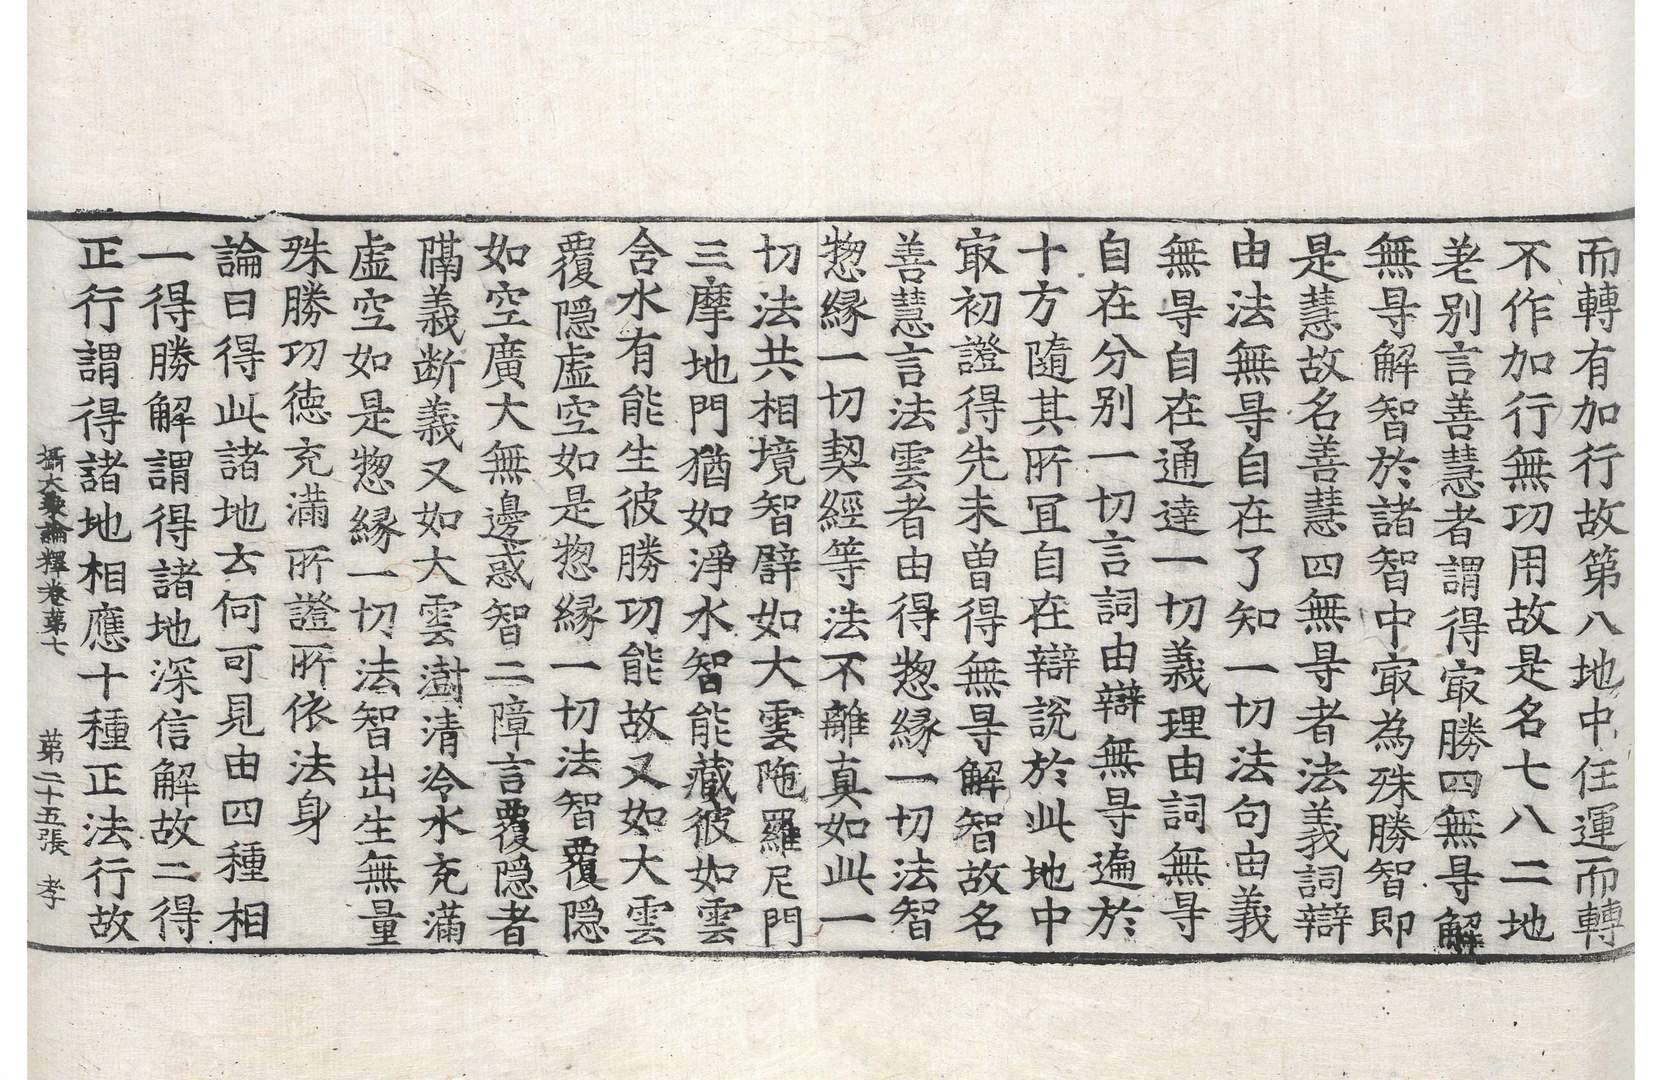 而轉有加行故第八地中任運而轉
不作加行無功用故是名七八二地
差別言善慧者謂得㝡勝四無㝵解
無㝵解智於諸智中㝡為殊勝智即
是慧故名善慧四無㝵者法義詞辯
由法無㝵自在了知一切法句由義
無㝵自在通達一切義理由詞無㝵
自在分別一切言詞由辯無㝵遍於
十方隨其所冝自在辯說於此地中
㝡初證得先未曾得無㝵解智故名
善慧言法雲者由得惣緣一切法智
惣緣一切契經等法不離真如此一
切法共相境智譬如大雲陁羅尼門
三摩地門猶如淨水智能藏彼如雲
含水有能生彼勝功能故又如大雲
覆隱虛空如是惣緣一切法智覆隱
如空廣大無邊惑智二障言覆隱者
隔義断義又如大雲澍清冷水充滿
虛空如是惣緣一切法智出生無量
殊勝功德充滿所證所依法身
論曰得此諸地云何可見由四種相
一得勝解謂得諸地深信解故二得
正行謂得諸地相應十種正法行故
攝大乘論釋卷第七 第二十五張 孝